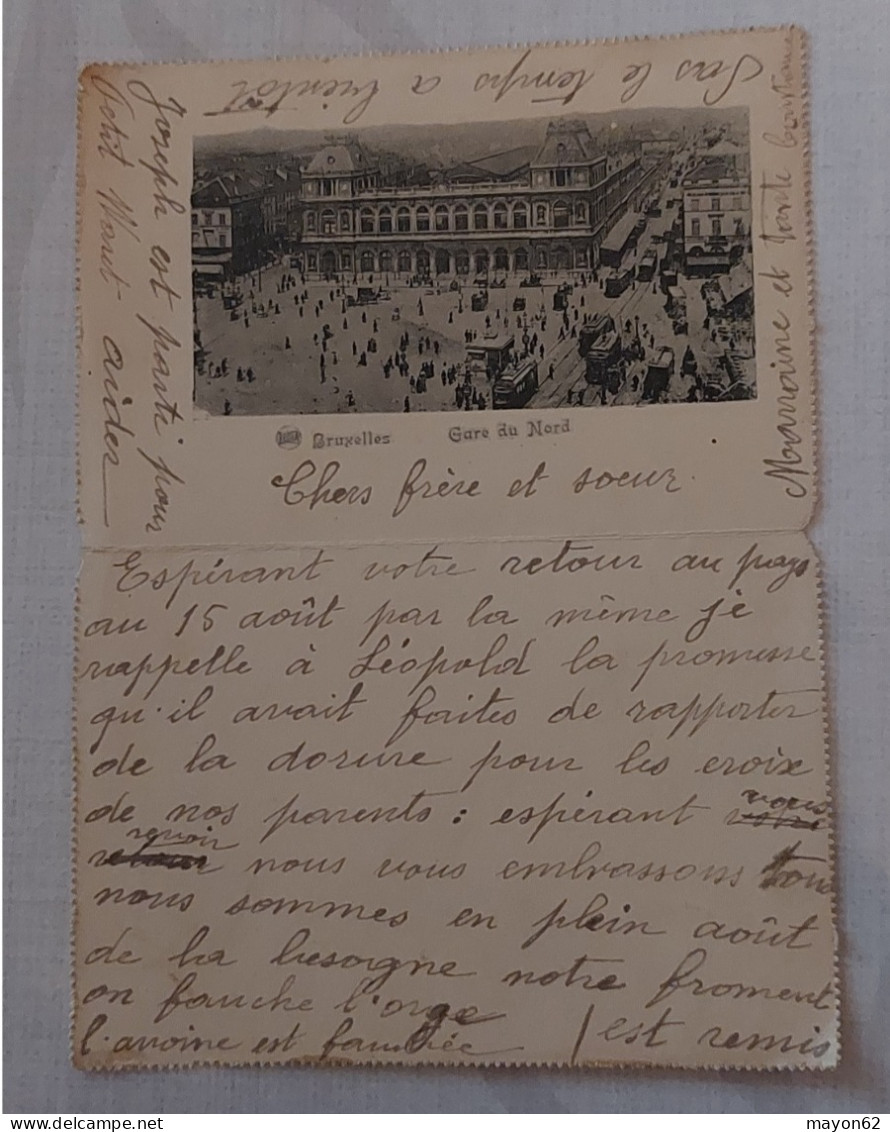 Bruxelles Gare du Nord
Chers frère et soeur.
Espérant votre retour au pays
au 15 août par la même je
rappelle à Léopold la promesse
qu'il avait faites de rapporter
de la dorure pour les croix
de nos parents : espérant vous
revoir nous vous embrassons tous
nous sommes en plein août
de la besogne notre froment
est remis
on fauche l'orge
l'avoine est fauchée
Joseph est parti pour
aider
Pas le temps a bientôt
Marraine et tante
mayon62